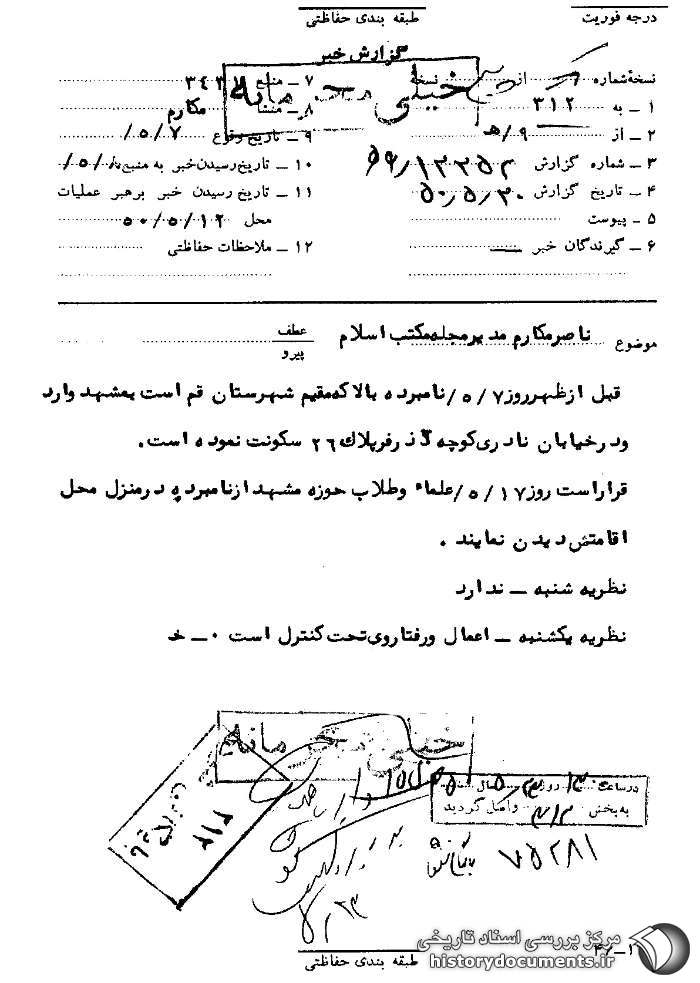 درجه فوریت
طبقه بندی حفاظتی
گزارش خبر
خیلی محرمانه
نسخهٔ شماره از نسخه
۱ ـ به ۳۱۲
۲ ـ از ۹/ﻫ
۳ ـ شماره گزارش
۴ ـ تاریخ گزارش ۵۰٫۵٫۲۰
۵ ـ پیوست
۶ ـ گیرندگان خبر
۷ ـ منبع
۸ ـ منشأ مکارم
۹ ـ تاریخ وقوع ۵/۷/
۱۰ ـ تاریخ رسیدن خبر به منبع
۱۱ ـ تاریخ رسیدن خبر برهبر عملیات
محل ۵۰/۵/۱۲
۱۲ ـ ملاحظات حفاظتی
موضوع ناصر مکارم مدیر مجله مکتب اسلام
عطف
پیرو
قبل ازظهر روز ۵/۷/ نامبرده بالا که مقیم شهرستان قم است بمشهد وارد
و در خیابان نادری کوچه پلاک ۲۶ سکونت نموده است.
قرار است روز ۵/۱۷/ علماء و طلاب حوزه مشهد از نامبرده در منزل محل
اقامتش دیدن نمایند .
نظریه شنبه ـ ندارد
نظریه یکشنبه ـ اعمال و رفتار وی تحت کنترل است ۰ ـ خ
خیلی محرمانه
در ساعت روز سال
به بخش ۳۱۲ واصل گردید
۳۱۲
بایگانی شود
۷۵۲۸۱
طبقه بندی حفاظتی
مرکز بررسی اسناد تاریخی
historydocuments.ir